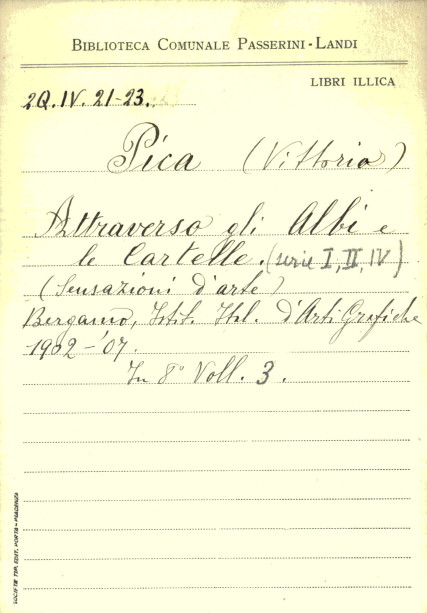 BIBLIOTECA COMUNALE PASSERINI-LANDI
LIBRI ILLICA
2Q.IV.21-23.
Pica (Vittorio)
Attraverso gli Albi e
le Cartelle. (serie I, II, IV)
(Sensazioni d'arte)
Bergamo, Istit. Ital. d'Arti Grafiche
1902-'07.
In 8° Voll. 3.
SOCIETÀ TIP. EDIT. PORTA - PIACENZA